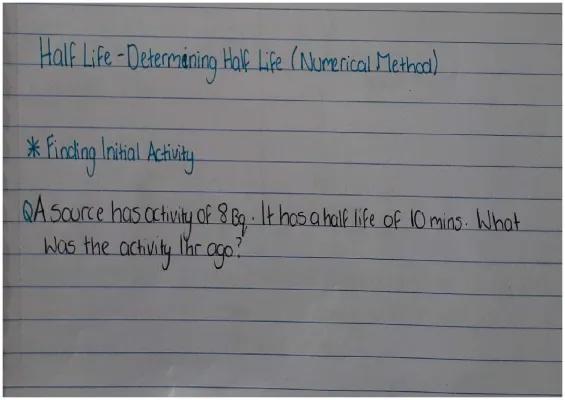 Half Life - Determining Half Life (Numerical Method)
* Finding Initial Activity
Q A source has activity of 8 Bq. It has a half life of 10 mins. What
Was the activity 1hr ago?